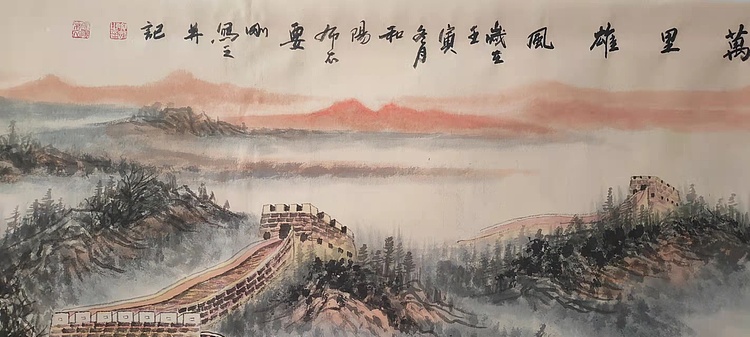 萬里雄風歲在壬寅冬月和陽布衣要剛寫之并記